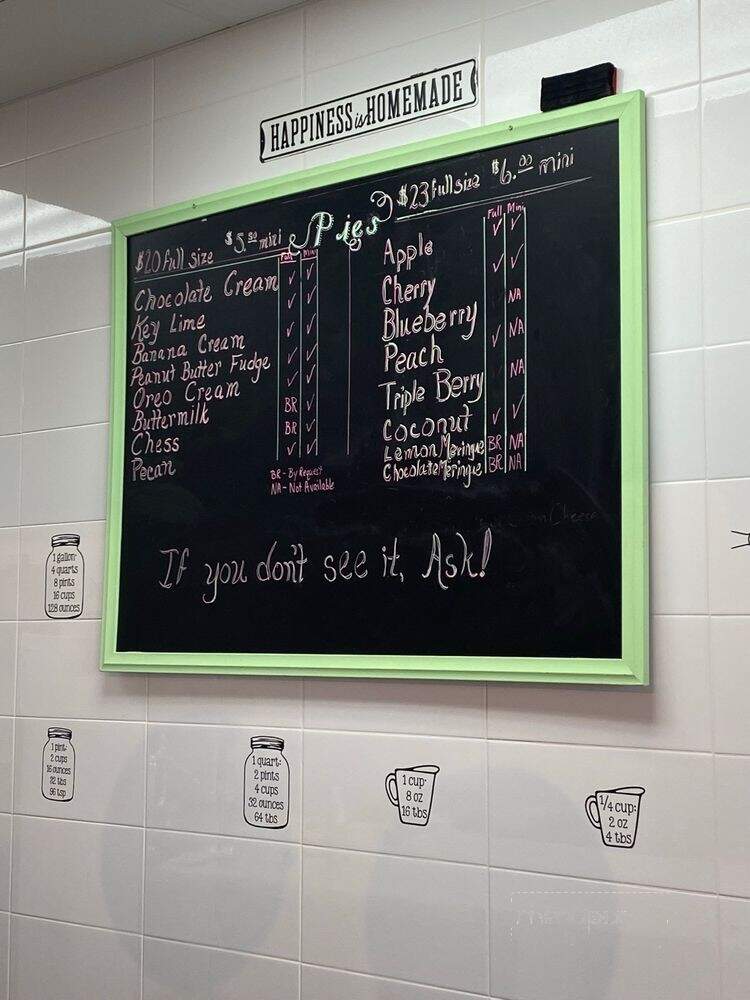 HAPPINESS is HOMEMADE
Pies
$20 full size $5.50 mini
Full Mini
Chocolate Cream ✓ ✓
Key Lime ✓ ✓
Banana Cream ✓ ✓
Peanut Butter Fudge ✓ ✓
Oreo Cream ✓ ✓
Buttermilk BR ✓
Chess BR ✓
Pecan ✓ ✓
BR - By Request
NA - Not Available
$23 full size $6.00 mini
Full Mini
Apple ✓ ✓
Cherry ✓ ✓
Blueberry NA
Peach ✓ NA
Triple Berry NA
Coconut ✓ ✓
Lemon Meringue BR NA
Chocolate Meringue BR NA
If you don't see it, Ask!
1 gallon:
4 quarts
8 pints
16 cups
128 ounces
1 pint:
2 cups
16 ounces
32 tbs
96 tsp
1 quart:
2 pints
4 cups
32 ounces
64 tbs
1 cup:
8 oz
16 tbs
1/4 cup:
2 oz
4 tbs
menupix